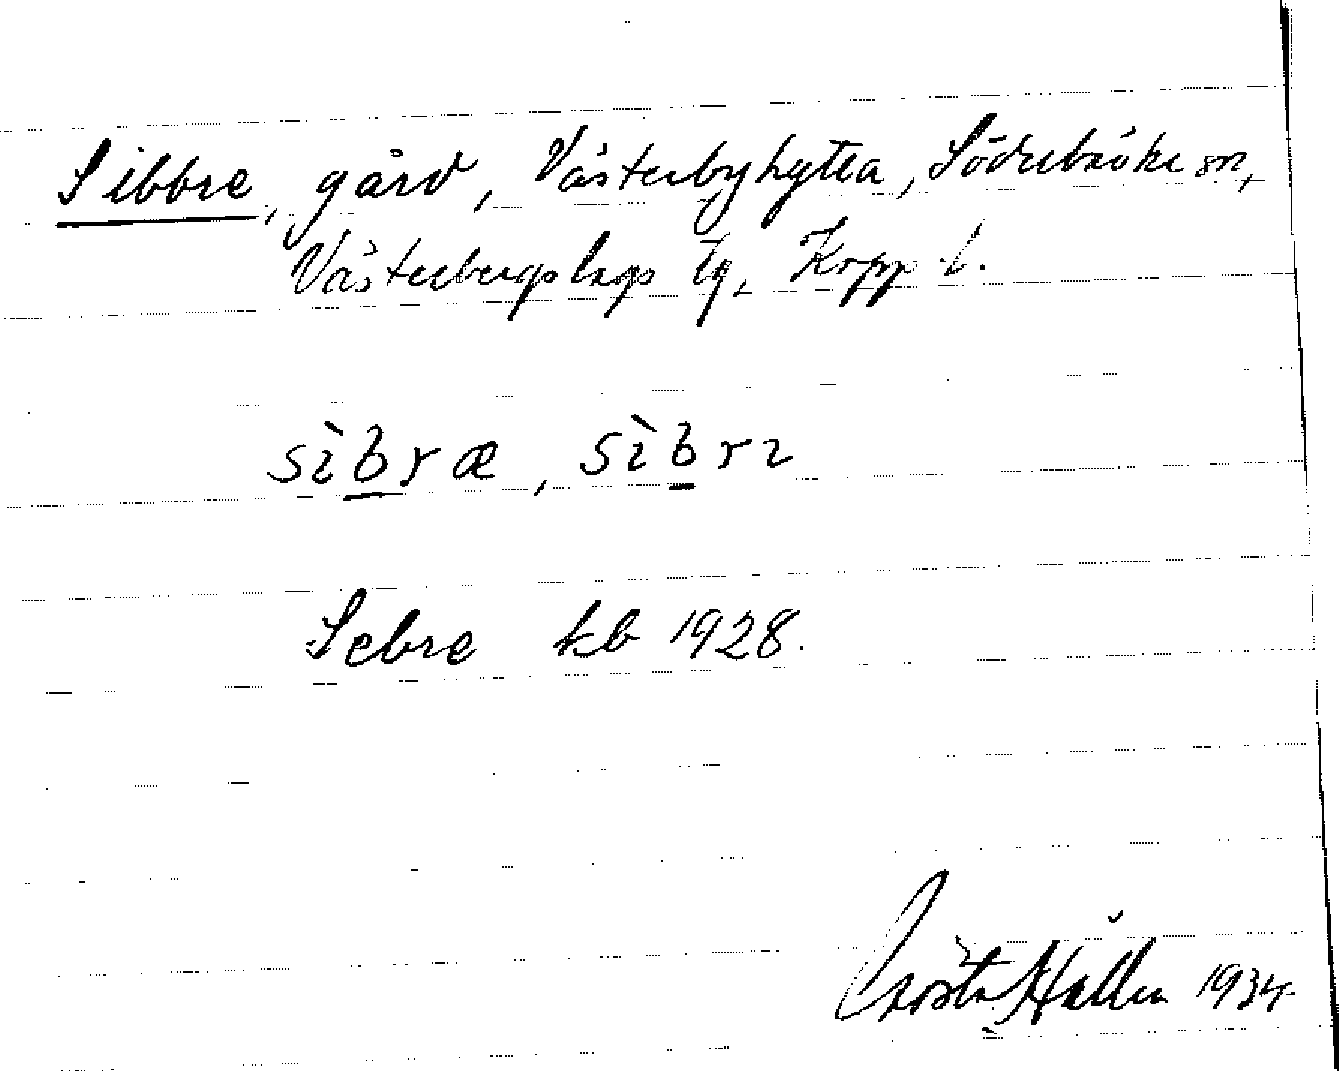 Sibbre, gård, Västerbyhytta, Söderbärke sn,
Västerbergslags tg, Kopp l.
sìbræ, sìbrɩ
Sebre kb 1928.
Gösta Hallén 1934.